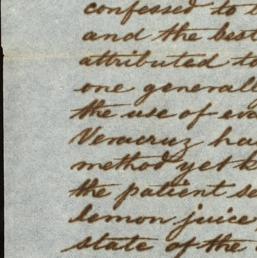 confessed to
and the best
attributed to
one generall
the use of eva
Veracruz ha
method yet k
the patient se
lemon juice
state of the